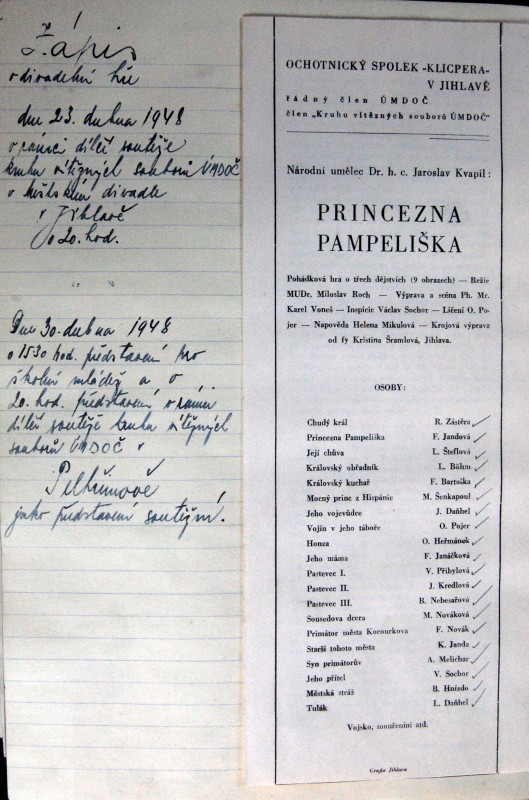 Zápis
o divadelní hře
dne 23. dubna 1948
v rámci dílčí soutěže
kruhu vítězných souborů ÚMDOČ
v městském divadle
v Jihlavě
o 20. hod.
Dne 30. dubna 1948
o 1530 hod. představení pro
školní mládež a o
20. hod. představení v rámci
dílčí soutěže kruhu vítězných
souborů ÚMDOČ v
Pelhřimově
jako představení soutěžní.
OCHOTNICKÝ SPOLEK „KLICPERA“
V JIHLAVĚ
řádný člen ÚMDOČ
člen „Kruhu vítězných souborů ÚMDOČ“
Národní umělec Dr. h. c. Jaroslav Kvapil:
PRINCEZNA
PAMPELIŠKA
Pohádková hra o třech dějstvích (9 obrazech) — Režie
MUDr. Miloslav Roch — Výprava a scéna Ph. Mr.
Karel Voneš — Inspicie Václav Sochor — Líčení O. Po-
jer — Napověda Helena Mikulová — Krojová výprava
od fy Kristina Šramlová, Jihlava.
OSOBY:
Chudý král R. Zástěra
Princezna Pampeliška F. Jandová
Její chůva L. Šteflová
Královský obřadník L. Böhm
Královský kuchař F. Bartoška
Mocný princ z Hispánie M. Šenkapoul
Jeho vojevůdce J. Daňhel
Vojín v jeho táboře O. Pojer
Honza O. Heřmánek
Jeho máma F. Janáčková
Pastevec I. V. Přibylová
Pastevec II. J. Kredlová
Pastevec III. B. Nebesařová
Sousedova dcera M. Nováková
Primátor města Kocourkova F. Novák
Starší tohoto města K. Janda
Syn primátorův A. Melichar
Jeho přítel V. Sochor
Městská stráž B. Hnízdo
Tulák L. Daňhel
Vojsko, mouřeníni atd.
Grafia Jihlava